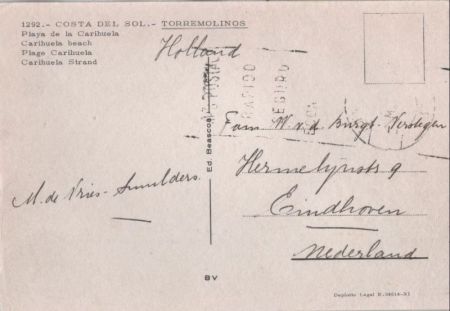 1292.- COSTA DEL SOL.- TORREMOLINOS
Playa de la Carihuela
Carihuela beach
Plage Carihuela
Carihuela Strand
Holland
POSTAL
RAPIDO
SEGURO
Fam. W. v. d. Burgt - Verstegen
Hermelijnstr 9
Eindhoven
Nederland
M. de Vries - Smulders.
Ed. Beascoa
BV